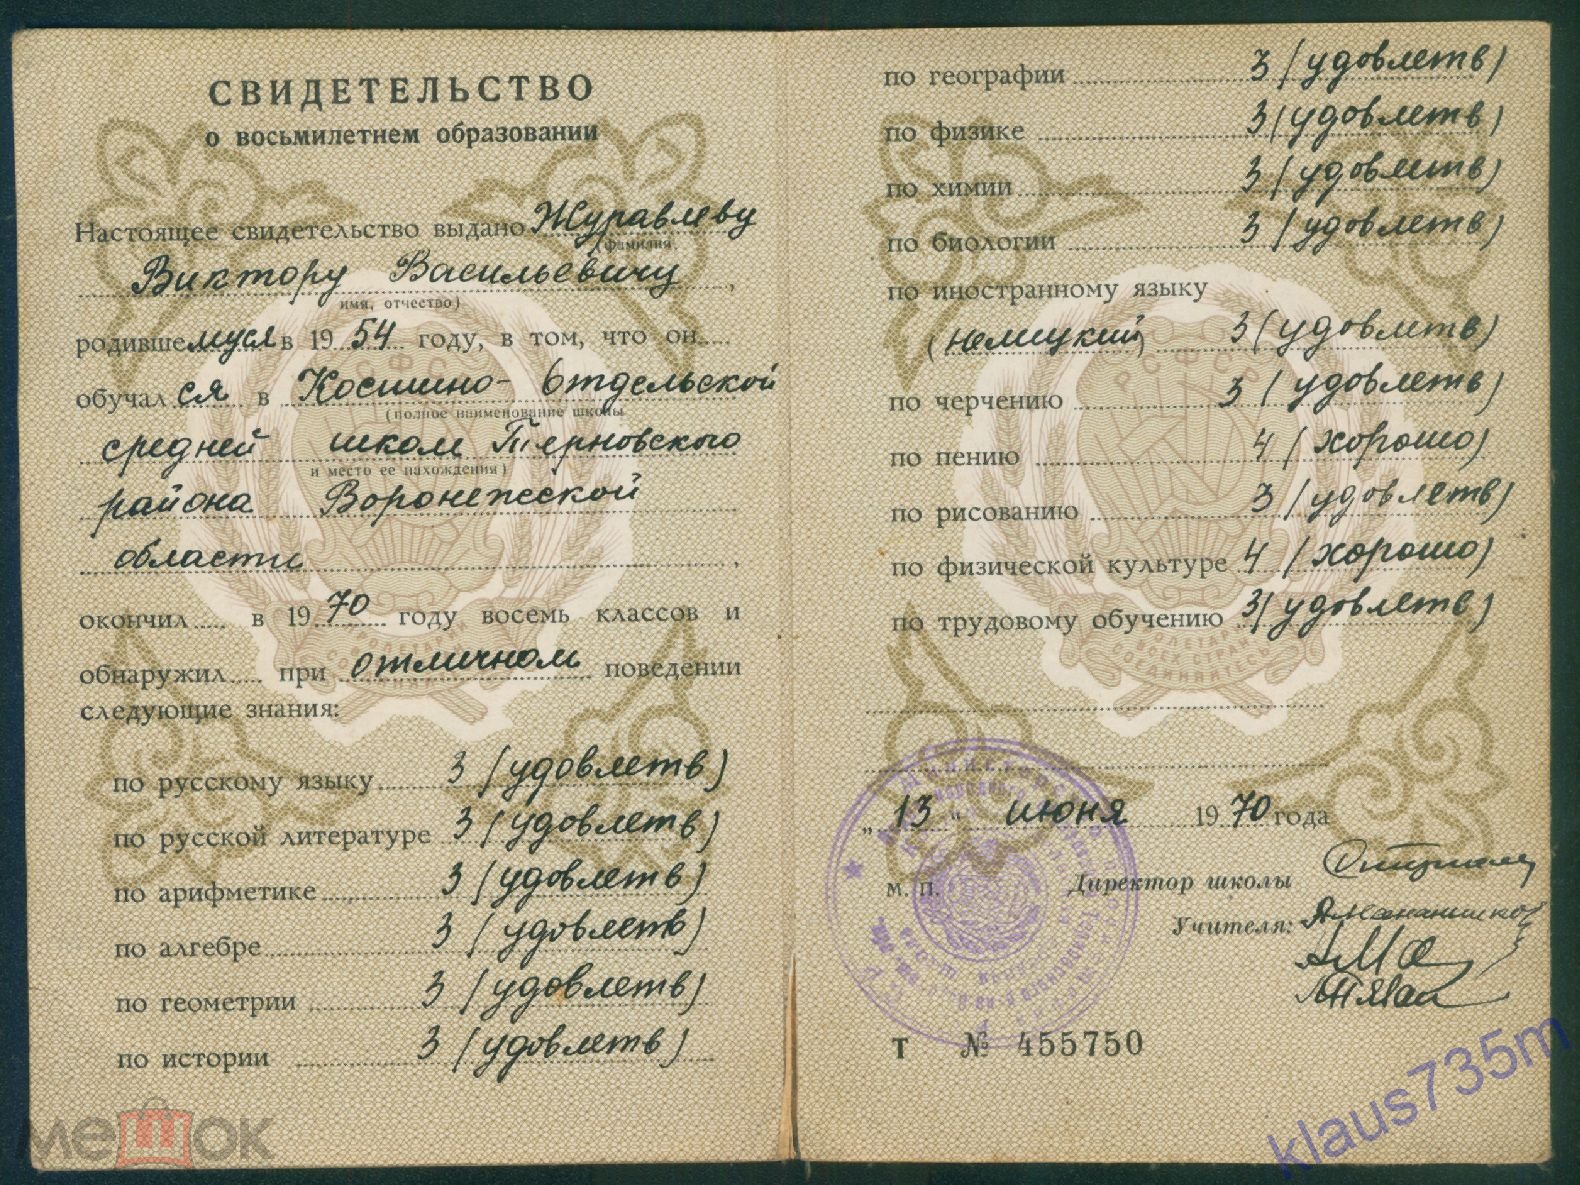 СВИДЕТЕЛЬСТВО
о восьмилетнем образовании
Настоящее свидетельство выдано Журавлеву
(фамилия,
Виктору Васильевичу,
имя, отчество)
родившемуся в 1954 году, в том, что он
обучался в Косшино-Отдельской
(полное наименование школы
средней школе Терновского
и место ее нахождения)
района Воронежской
области,
окончил в 1970 году восемь классов и
обнаружил при отличном поведении
следующие знания:
по русскому языку 3 (удовлетв)
по русской литературе 3 (удовлетв)
по арифметике 3 (удовлетв)
по алгебре 3 (удовлетв)
по геометрии 3 (удовлетв)
по истории 3 (удовлетв)
по географии 3 (удовлетв)
по физике 3 (удовлетв)
по химии 3 (удовлетв)
по биологии 3 (удовлетв)
по иностранному языку
(немецкий) 3 (удовлетв)
по черчению 3 (удовлетв)
по пению 4 (хорошо)
по рисованию 3 (удовлетв)
по физической культуре 4 (хорошо)
по трудовому обучению 3 (удовлетв)
„13“ июня 1970 года
м. п. Директор школы
Учителя:
Т № 455750
мешок
klaus735m